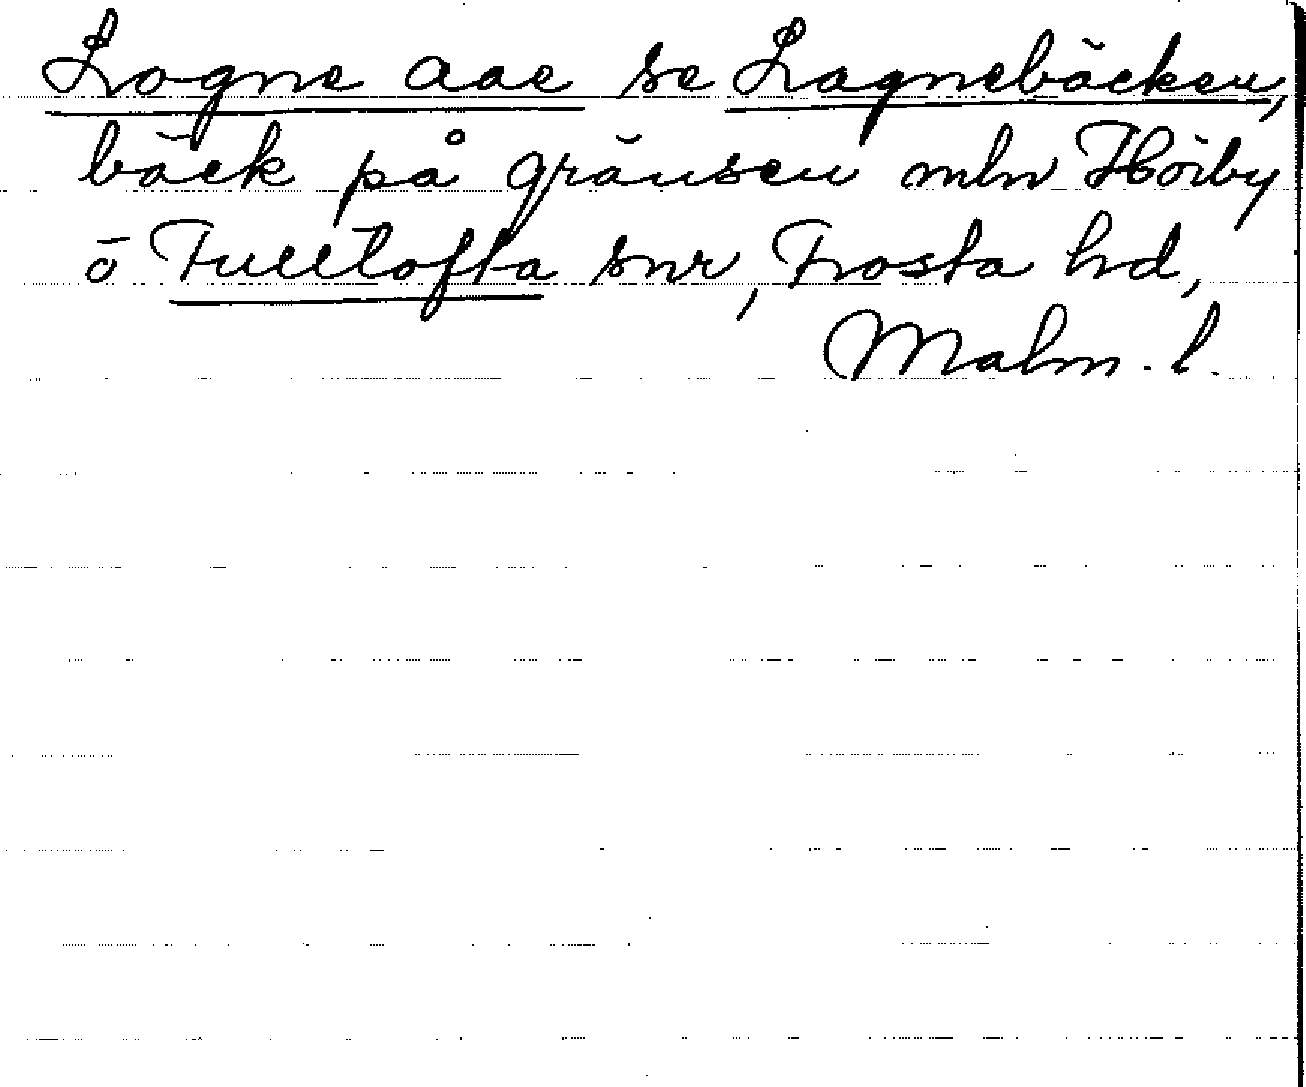 Logne aae se Lagnebäcken,
bäck på gränsen mln Hörby
o Fulltofta snr, Frosta hd,
Malm. l.